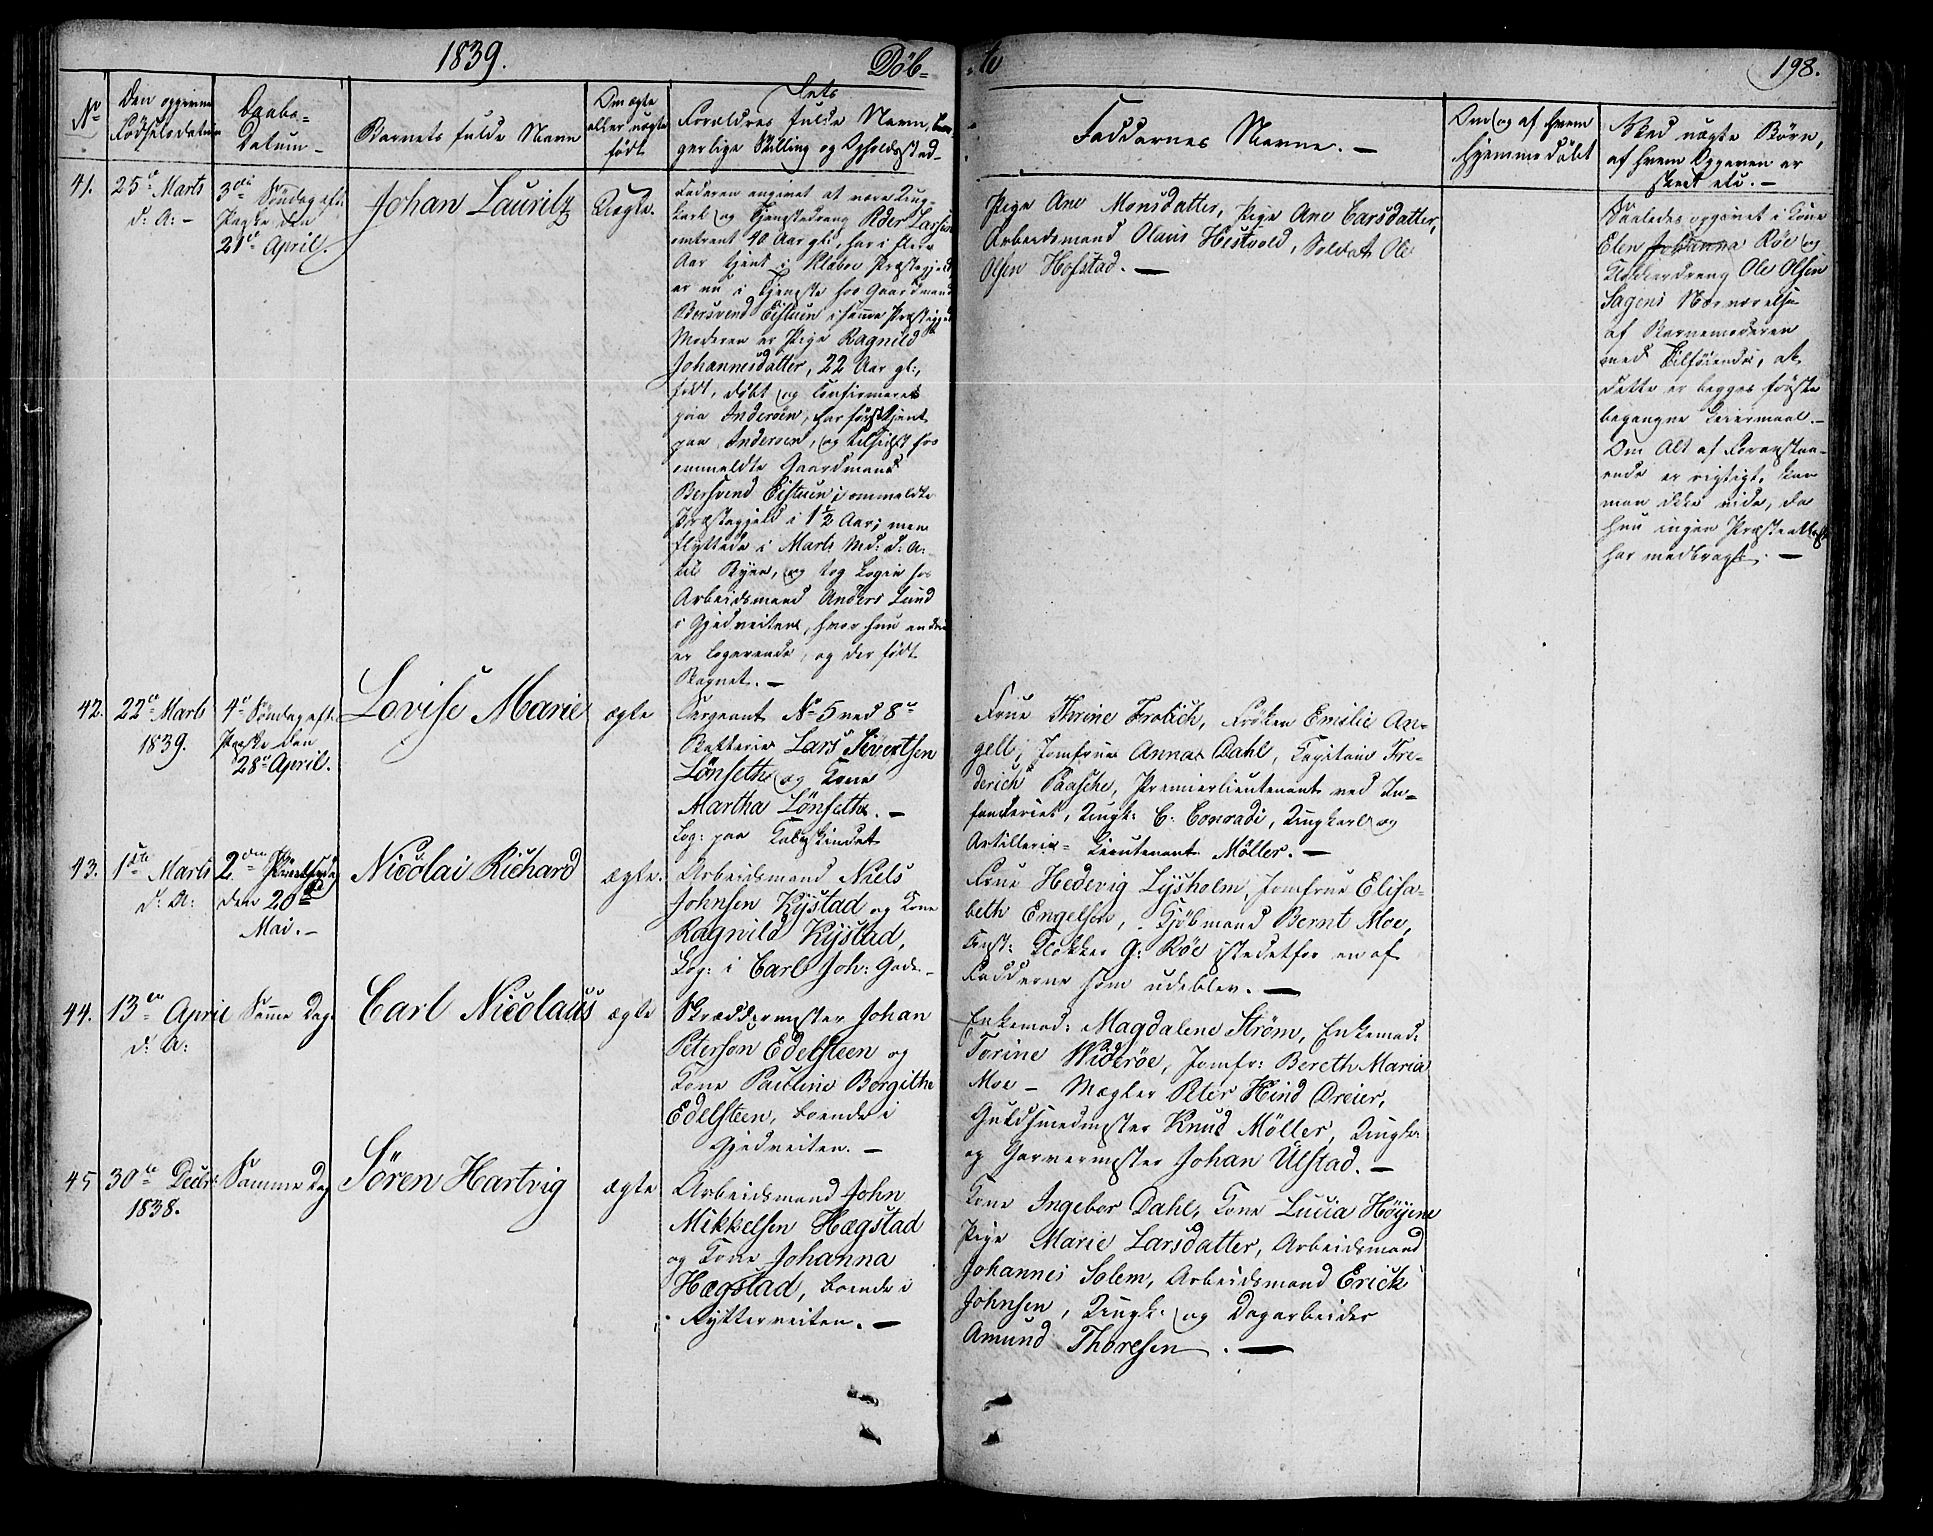 1839.
Döb=
te
198.
No
Den opgivne
Födselsdatum
Daabs-
Datum
Barnets fulde Navn
Om ægte
eller uægte
født
Forældres fulde Navn, bor-
gerlige Stilling og Opholdssted
Faddernes Navne. —
Om og af hvem
hjemmedöbt
Ved uægte Börn,
af hvem Opgaven er
skeet etc. —
41.
25de Marts
d: A: -
3die Söndag eft:
Paaske den
21de April.
Johan Lauritz
Uægte.
Faderen angivet at være Ung-
karl og Tjenestedreng Peder Larsen
omtrent 40 Aar gl:, har i flere
Aar tjent i Klæboe Præstegjeld
er nu i Tjeneste hos Gaardmand
Bersvend Eistuen i samme Præstegjeld
Moderen er Pige Ragnild
Johannesdatter, 22 Aar gl:,
født, döbt og confirmeret
paa Inderöen, har først tjent
paa Inderöen, og tilsidst hos
ommeldte Gaardmand
Bersvend Eistuen i ommeldte
Præstegjeld i 1½ Aar; men
flyttede i Marts Md: d: A:
til Byen, og tog Logie hos
Arbeidsmand Anders Lund
i Gjedveiten, hvor hun endnu
er logerende, og der født
Barnet. —
Pige Ane Monsdatter, Pige Ane Larsdatter,
Arbeidsmand Olaus Hestvold, Soldat Ole
Olsen Hofstad. —
Saaledes opgivet i Kone
Elen Johanna Röe og
Klokkerdreng Ole Olsen
Sagens Nærværelse
af Barnemoderen
med Tilföiende, at
dette er begges förste
begangne Leiermaal. —
Om Alt af Foranstaa-
ende er rigtigt, kan
man ikke vide, da
hun ingen Præsteattest
har medbragt. —
42.
22de Marts
1839.
4de Söndag eft:
Paaske den
28de April.
Lovise Marie
ægte
Sergeant No 5 ved 8de
Batterie Lars Sivertsen
Lönseth og Kone
Martha Lönseth. —
Log: paa Kalvskindet
Frue Thrine Frolich, Fröken Emilie An-
gell, Jomfrue Anna Dahl, Capitain Fre-
derich Paasche, Premierlieutenant ved In-
fanteriet, Ungk: C: Conradi, Ungkarl og
Artillerie-Lieutenant Möller. —
43.
1ste Marts
d: A:
2den Pintsedag
den 20de
Mai. —
Nicolai Richard
ægte.
Arbeidsmand Niels
Johnsen Kystad og Kone
Ragnild Kystad,
Log: i Carl Joh: Gade. —
Frue Hedevig Lysholm, Jomfrue Elisa-
beth Engelsen, Kjöbmand Bernt Moe,
Const: Klokker G: Röe istedetfor en af
Fadderne som udeblev. —
44.
13de April
d: A:
Samme Dag.
Carl Nicolaus
ægte
Skreddermester Johan
Peterson Edelsteen og
Kone Pauline Bergithe
Edelsteen, boende i
Gjedveiten. —
Enkemad: Magdalene Ström, Enkemad:
Torine Wideröe, Jomfr: Bereth Maria
Moe — Mægler Peter Hind Dreier,
Guldsmedmester Knud Möller, Ungk:
og Garvermester Johan Ulstad. —
45
30te Decbr
1838.
Samme Dag
Sören Hartvig
ægte
Arbeidsmand John
Mikkelsen Hægstad
og Kone Johanna
Hægstad, boende i
Rytterveiten. —
Kone Ingebor Dahl, Kone Lucia Höyene
Pige Marie Larsdatter, Arbeidsmand
Johannes Solem, Arbeidsmand Erick
Johnsen, Ungk: og Dagarbeider
Amund Thoresen. —